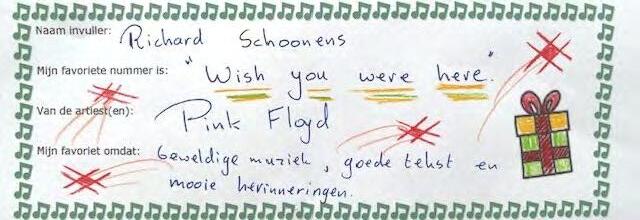 Naam invuller: Richard Schoonens
Mijn favoriete nummer is: "Wish you were here".
Van de artiest(en): Pink Floyd
Mijn favoriet omdat: Geweldige muziek, goede tekst en
mooie herinneringen.